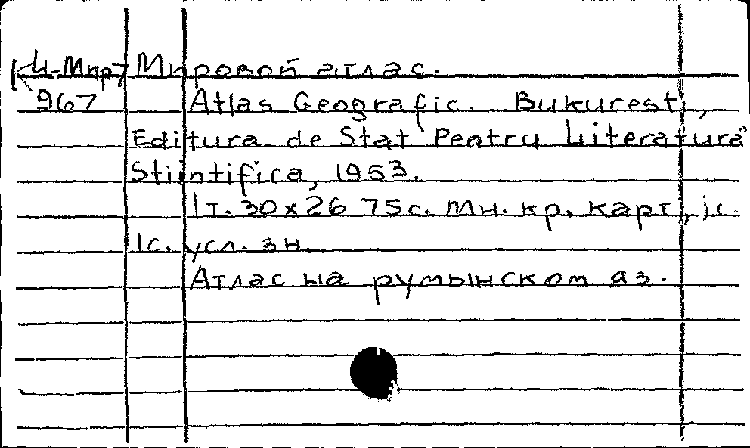 И-Мир Мировой атлас.
967 Atlas Geografic. Bukuresti,
Editura de Stat Pentru Literatura
Stiintifica, 1953.
1т. 30х26 75с. Мн. кр. карт,
1с. усл. зн.
Атлас на румынском яз.